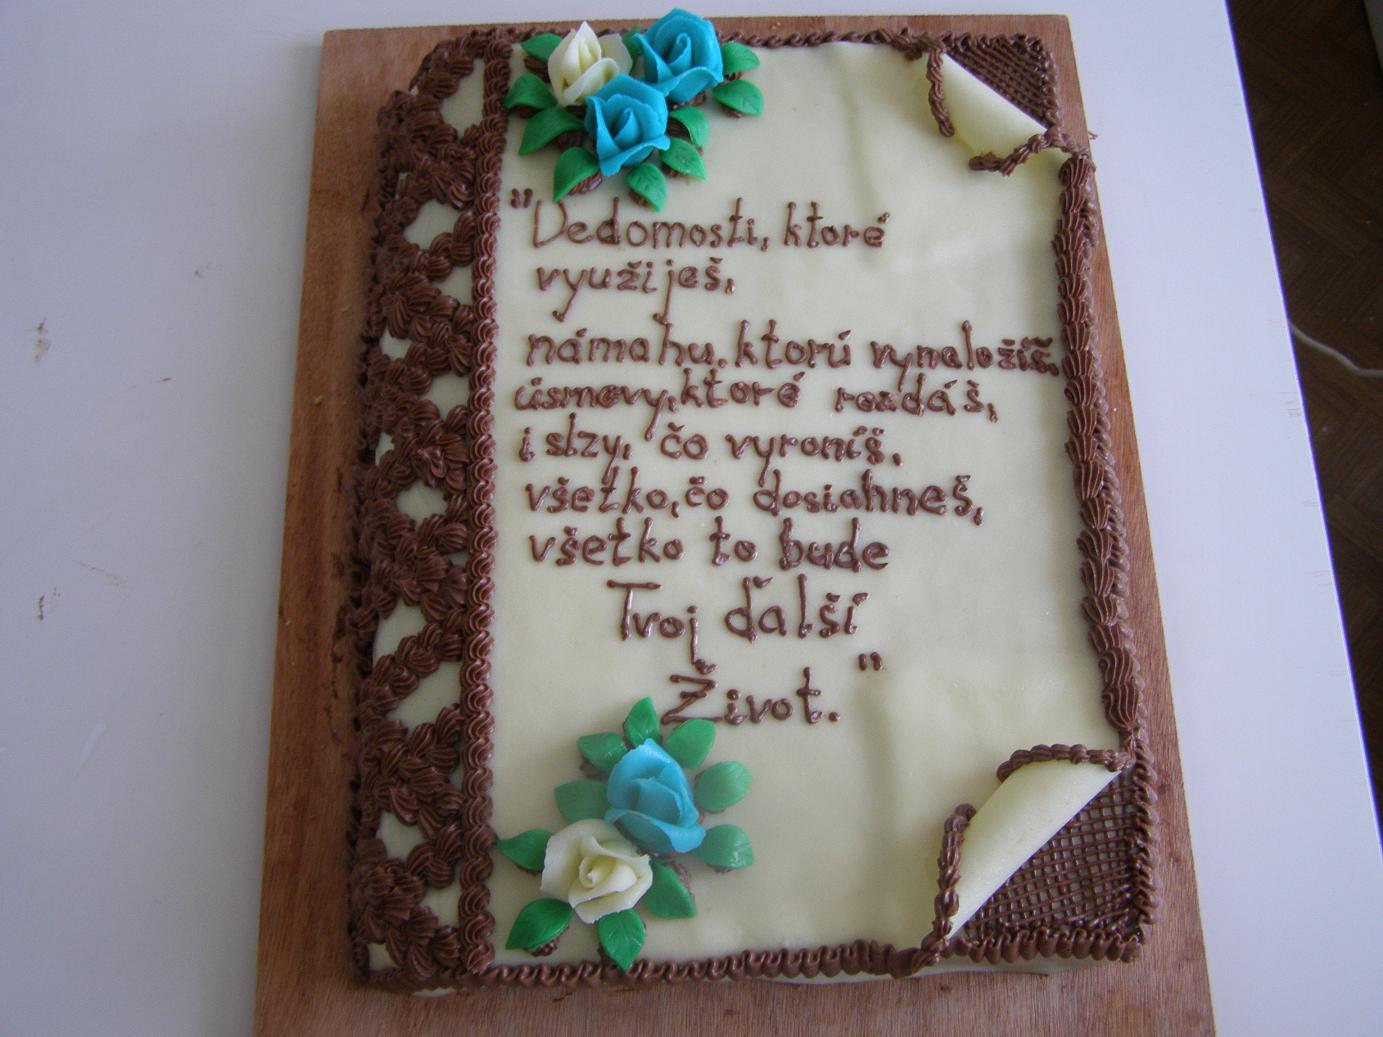 "Vedomosti, ktoré
využiješ,
námahu, ktorú vynaložíš,
úsmevy, ktoré rozdáš,
i slzy, čo vyroníš,
všetko, čo dosiahneš,
všetko to bude
Tvoj ďalší
Život."